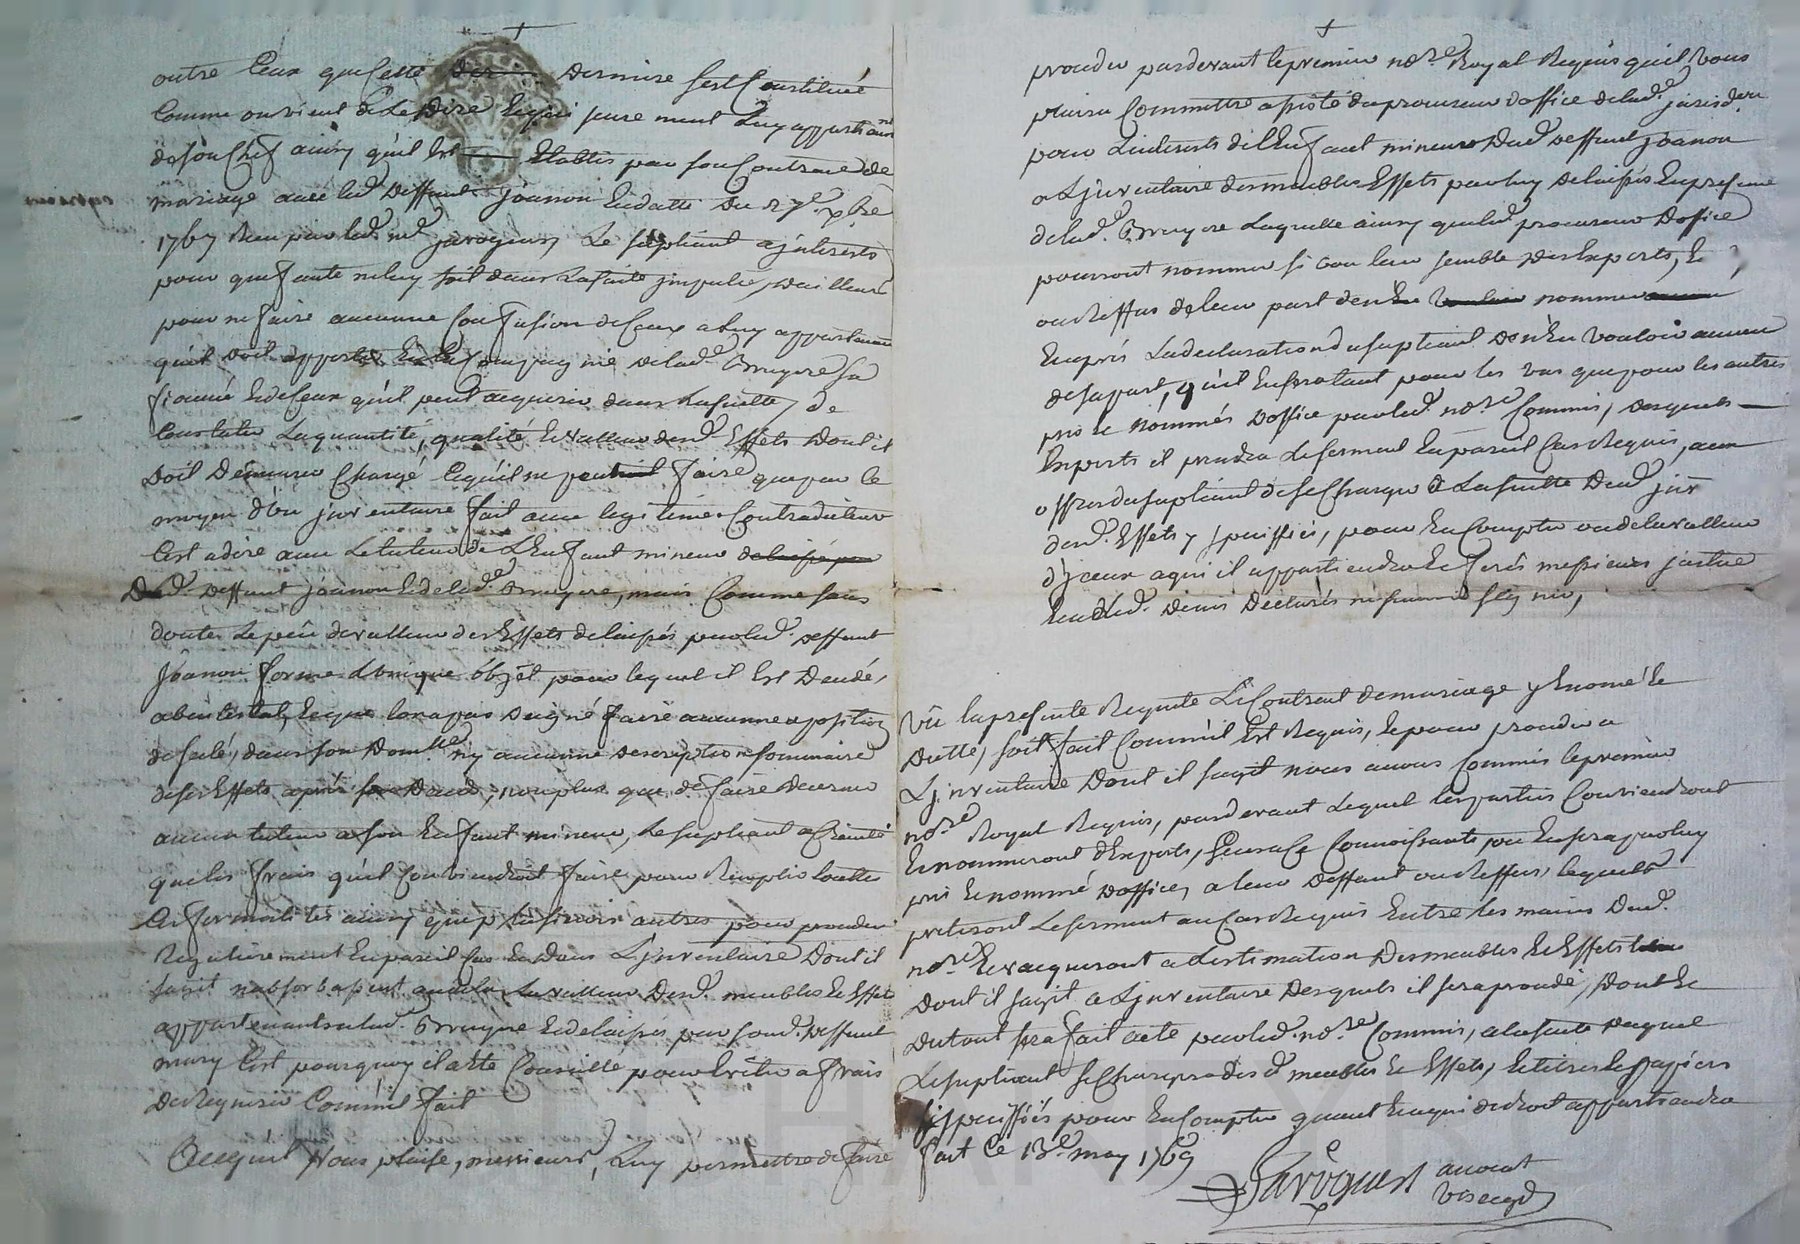 outre Ceux que Cette derniere s'est Constitué
Comme on vient de Le dire Luy appartenant
de son Chef ainsy qu'il Est Etablis par son Contract de
mariage avec led. Deffunt Joanon En datte Du
1767 Reçu par led. me Javogues, Le supliant a jnterests
pour que faute ne luy soit dans La suite jmputée, d'ailleurs
pour ne faire aucunne Confusion de Ceux a luy appartenants
qu'il doit apporter En la Compagnie de lad. Bruyere sa
fiancée Et de Ceux qu'il peut acquerir dans La suitte, de
Constater La quantité, qualité Et valleur desd. Effets Dont il
doit Demeurer Chargé Ce qu'il ne peut faire que par le
moyen d'un jnventaire fait avec legitime Contradicteur
C'est a dire avec Le tuteur de L'Enfant mineur
Dud. Deffunt Joanon Et de lad. Bruyere, mais Comme sans
doute Le peu de valleur des Effets delaissés par led. deffunt
Joanon forme L'unique objet pour lequel il Est Decedé,
abintestat, Et que l'on a pas daigné faire aucunne apposition
de scelé, dans son Domlle ny aucunne description sommaire
de ses Effets après Deces, non plus que de faire decerner
aucun tuteur a son Enfant mineur, Le supliant a Crainte
que les frais qu'il Conviendroit faire pour Remplir toutte
Ces formalités ainsy que plusieurs autres pour proceder
Regulierement En pareil Cas Et dans L'jnventaire Dont il
s'agit n'absorbassent La valleur Desd. meubles Et Effets
appartenants a lad. Bruyere Et delaissés par sond. Deffunt
mary C'est pourquoy il a été Conseillé pour Eviter a frais
De Requerir Comm'il fait
Ace qu'il Vous plaise, messieurs, Luy permettre de faire
proceder pardevant le premier nore Royal Requis qu'il Vous
plaira Commettre assisté du procureur d'office de lad. jurisdon
pour L'interests de L'Enfant mineur Dud. Deffunt Joanon
a L'jnventaire des meubles Effets par luy Delaissés En presence
de lad. Bruyere Laquelle ainsy que led. procureur Doffice
pourront nommer si bon leur semble Des Experts, Et
au Reffus de leur part d'en nommer
Et après La declaration du supliant D'en En vouloir aucun
de sa part, qu'il En sera tant pour les uns que pour les autres
pris Et Nommés Doffice par led. nore Commis, Desquels
Experts il prendra Le serment En pareil Cas Requis, aux
offres du supliant de se Charger a La suitte Dud. jnvre
desd. Effets y spéciffiés, pour En Compter ou de la valleur
d'jceux a qui il appartiendra Et serés messieurs justice
Led. Denis Declarés ne sçavoir signer,
Vü la presente Requete Le Contract de mariage y Enoncé Et
Datté, soit fait Comm'il Est Requis, Et pour proceder a
L'jnventaire Dont il s'agit nous avons Commis le premier
nore Royal Requis, pardevant Lequel les parties Conviendront
Et nommeront d'Experts, Gens a Ce Connoissants ou En sera par luy
pris Et nommé Doffice, a leur Deffaut ou Reffus, lequels
preteront Le serment au Cas Requis Entre Les mains Dud.
nore Et vacqueront a L'estimation Des meubles Et Effets
Dont il s'agit a L'jnventaire Desquels il sera procedé, Dont Et
Du tout sera fait acte par led. nore Commis, a la suite Duquel
Le supliant se Chargera desd. meubles Et Effets, Et titres Et papiers
y spéciffiés pour En Compter quant Et a qui de droit appartiendra
fait Ce 13e may 1769
Javogues avocat